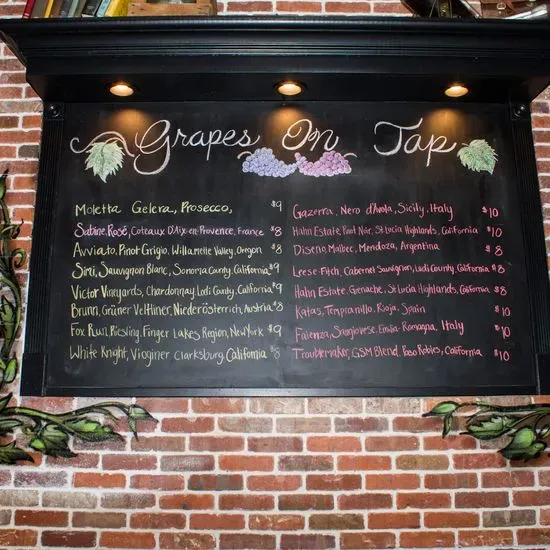 Grapes On Tap
Moletta Gelera, Prosecco, $9
Sabine, Rosé, Coteaux D'Aix-en-Provence, France $8
Avviato, Pinot Grigio, Willamette Valley, Oregon $8
Simi, Sauvignon Blanc, Sonoma County, California $9
Victor Vineyards, Chardonnay Lodi County, California $9
Brunn, Grüner Veltliner, Niederösterrich, Austria $8
Fox Run, Riesling, Finger Lakes Region, New York $9
White Knight, Vioginer Clarksburg, California $8
Gazerra, Nero d'Avola, Sicily, Italy $10
Hahn Estate, Pinot Noir, St Lucia Highlands, California $10
Diseno, Malbec, Mendoza, Argentina $8
Leese-Fitch, Cabernet Sauvignon, Lodi County, California $8
Hahn Estate, Genache, St Lucia Highlands, California $8
Katas, Tempranillo, Rioja, Spain $10
Faienza, Sangiovese, Emilia Romagna, Italy $10
Troublemaker, GSM Blend, Paso Robles, California $10